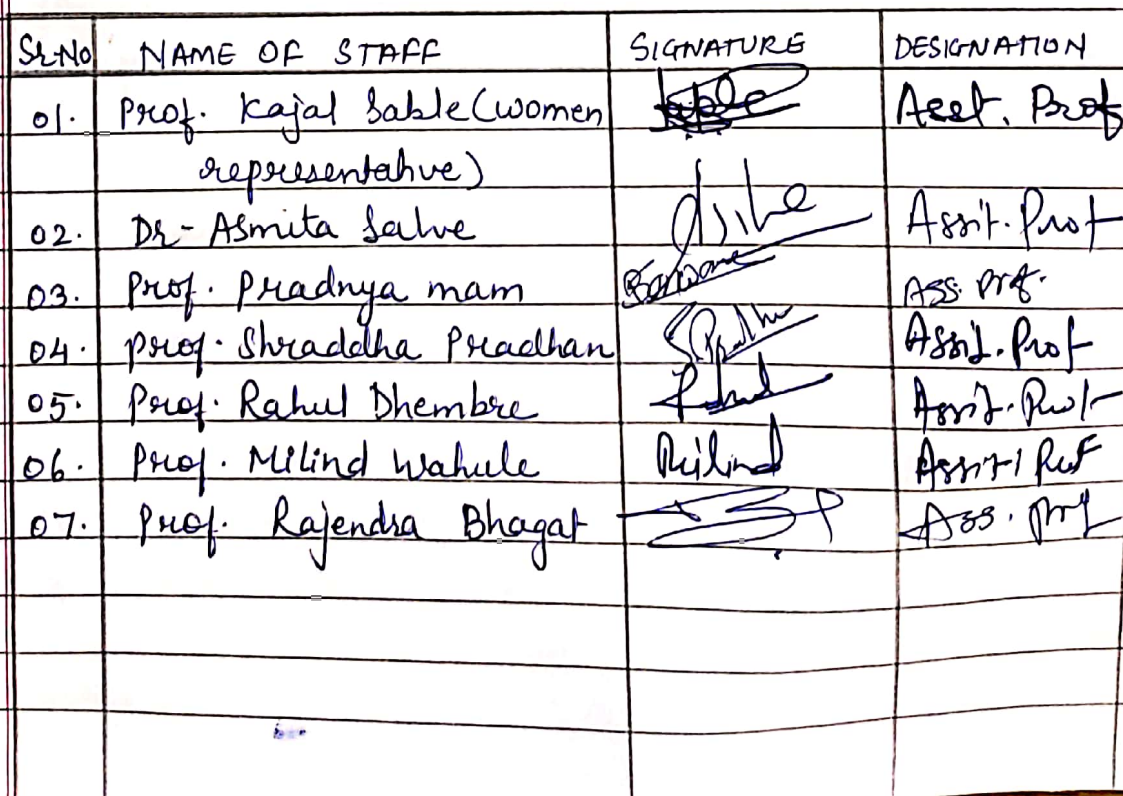 Sr.No NAME OF STAFF SIGNATURE DESIGNATION
01. Prof. Kajal Sable (women Asst. Prof
representative)
02. Dr- Asmita Salve Assit. Prof
03. Prof. Pradnya mam Ass. Prof.
04. Prof. Shraddha Pradhan Assit. Prof
05. Prof. Rahul Dhembre Rahul Assit. Prof
06. Prof. Milind Wahule Milind Assit. Prof
07. Prof. Rajendra Bhagat Ass. Prof